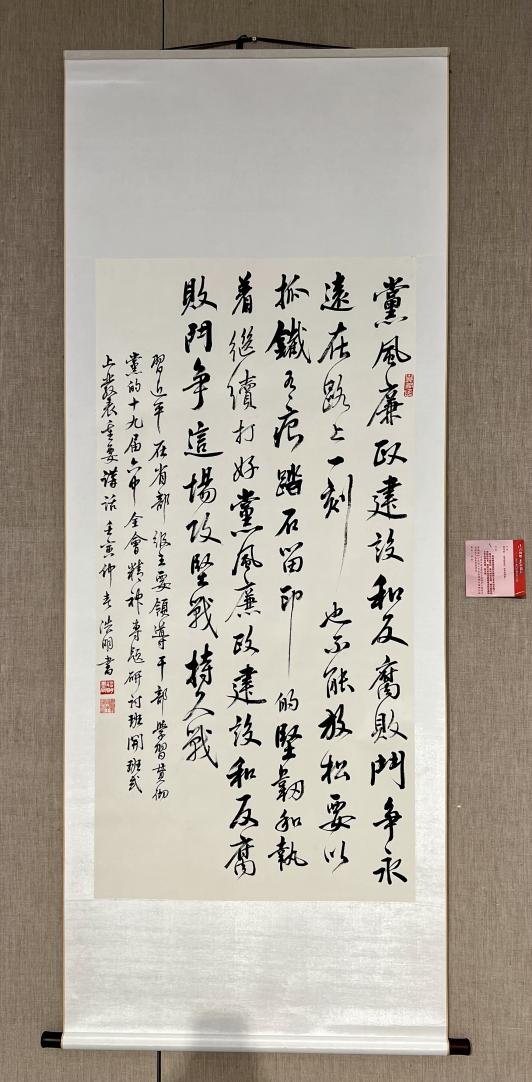 黨風廉政建設和反腐敗鬥争永
遠在路上一刻也不能放松要以
抓鐵有痕踏石留印的堅韌和執
着繼續打好黨風廉政建設和反腐
敗鬥争這場攻堅戰持久戰
習近平在省部級主要領導干部學習贯彻
黨的十九届六中全會精神專題研讨班開班式
上發表重要講話壬寅仲春浩明書